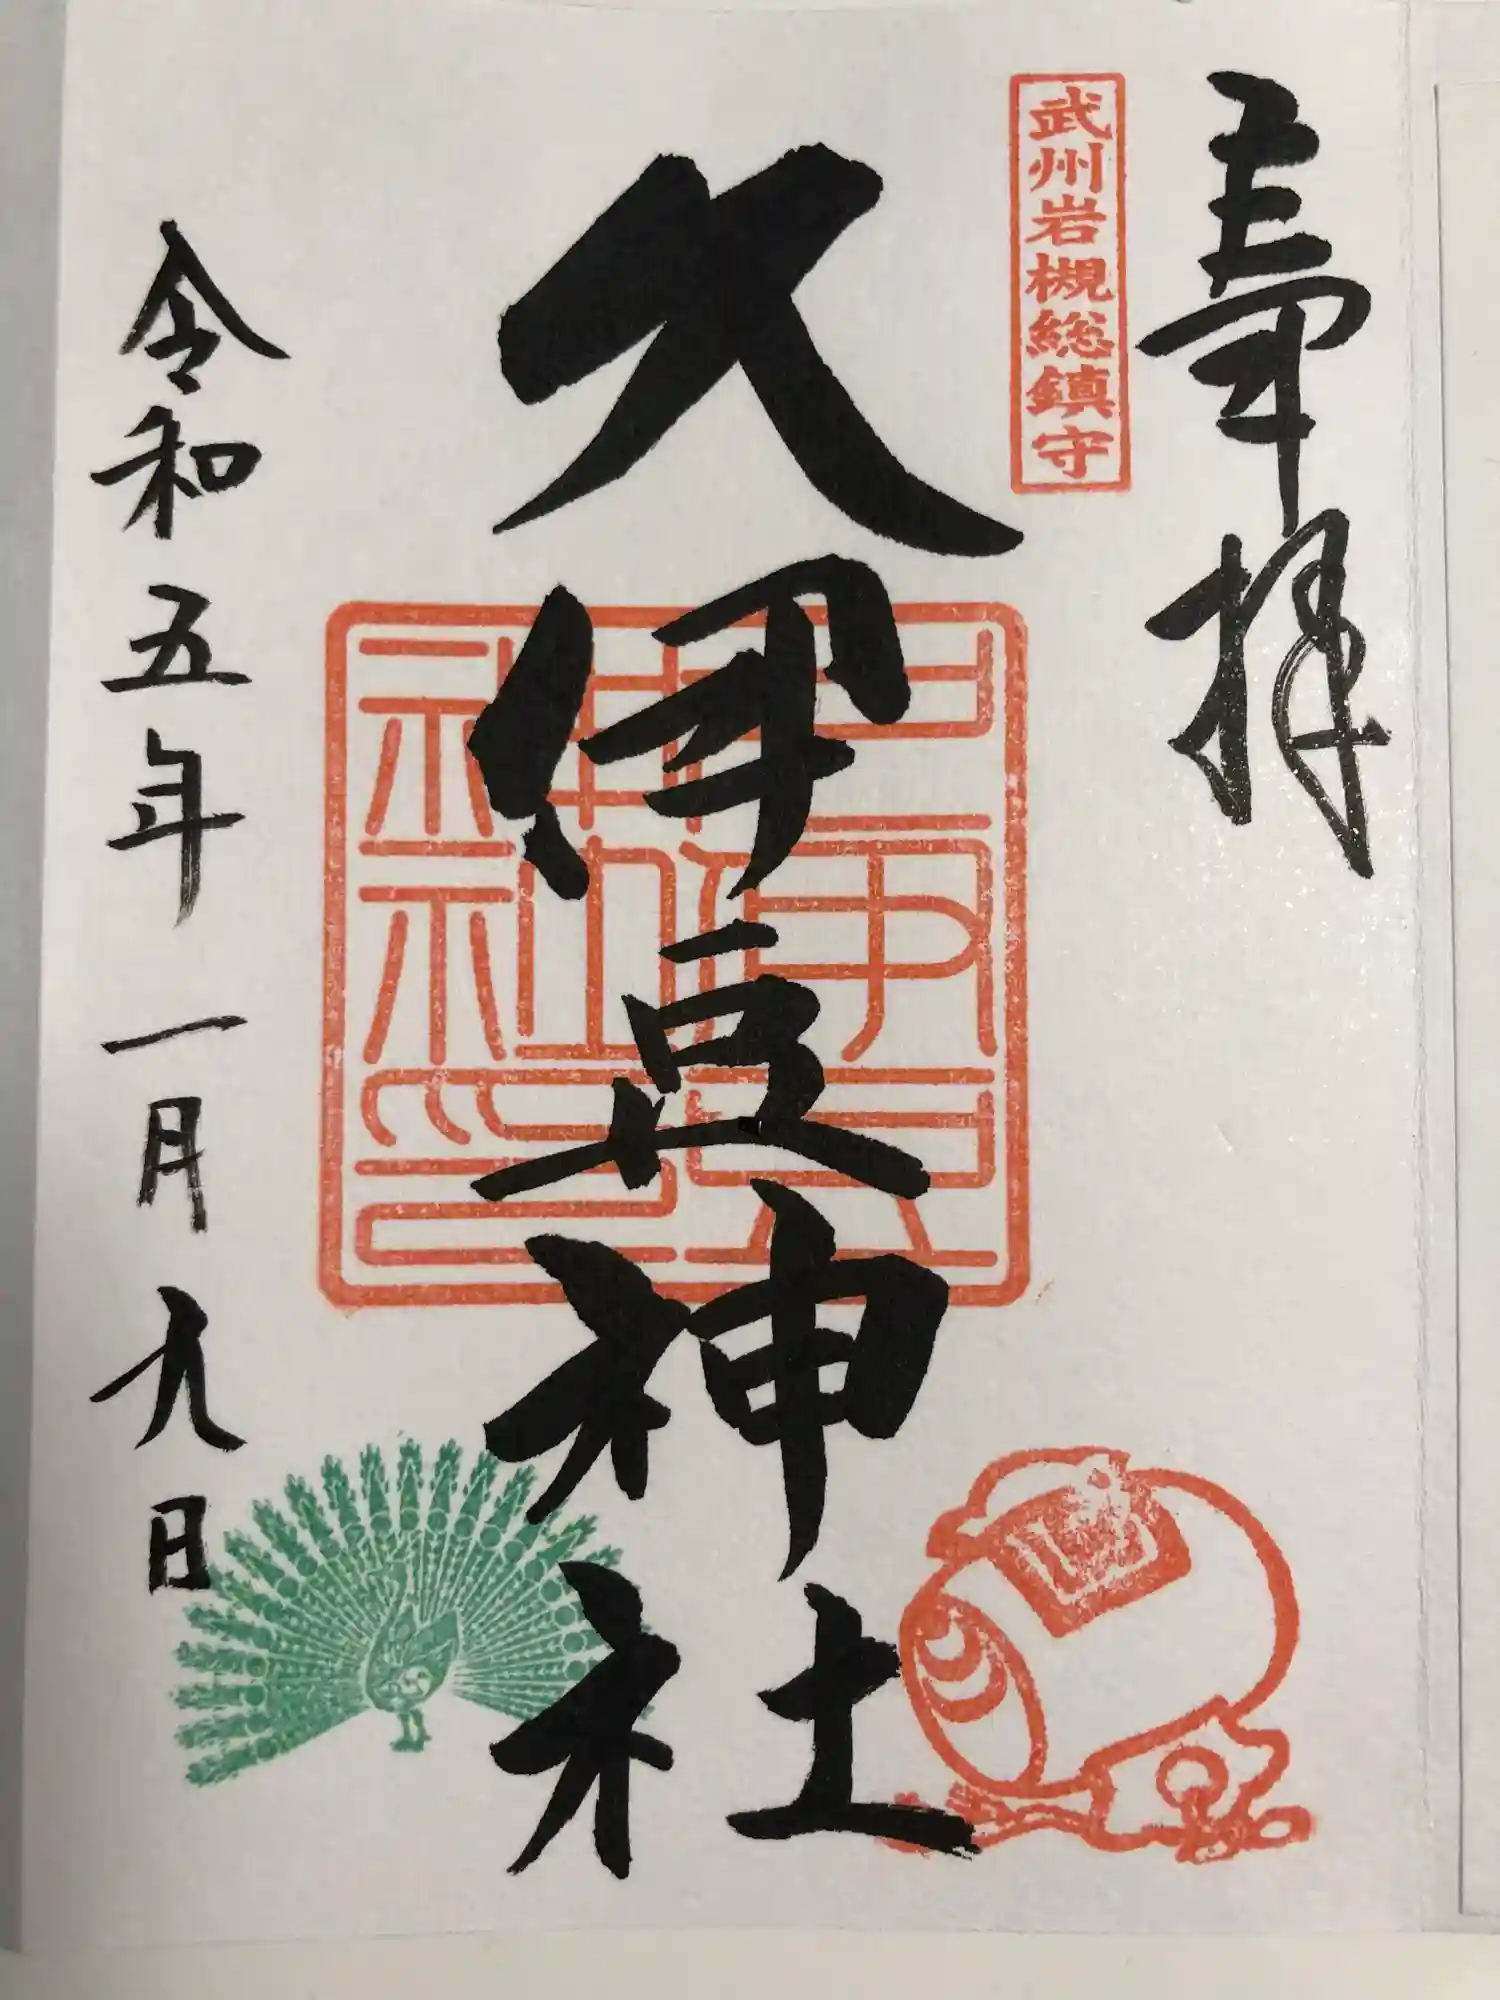 奉拝
武州岩槻総鎮守
久伊豆神社
久伊豆
神社印
令和五年一月九日